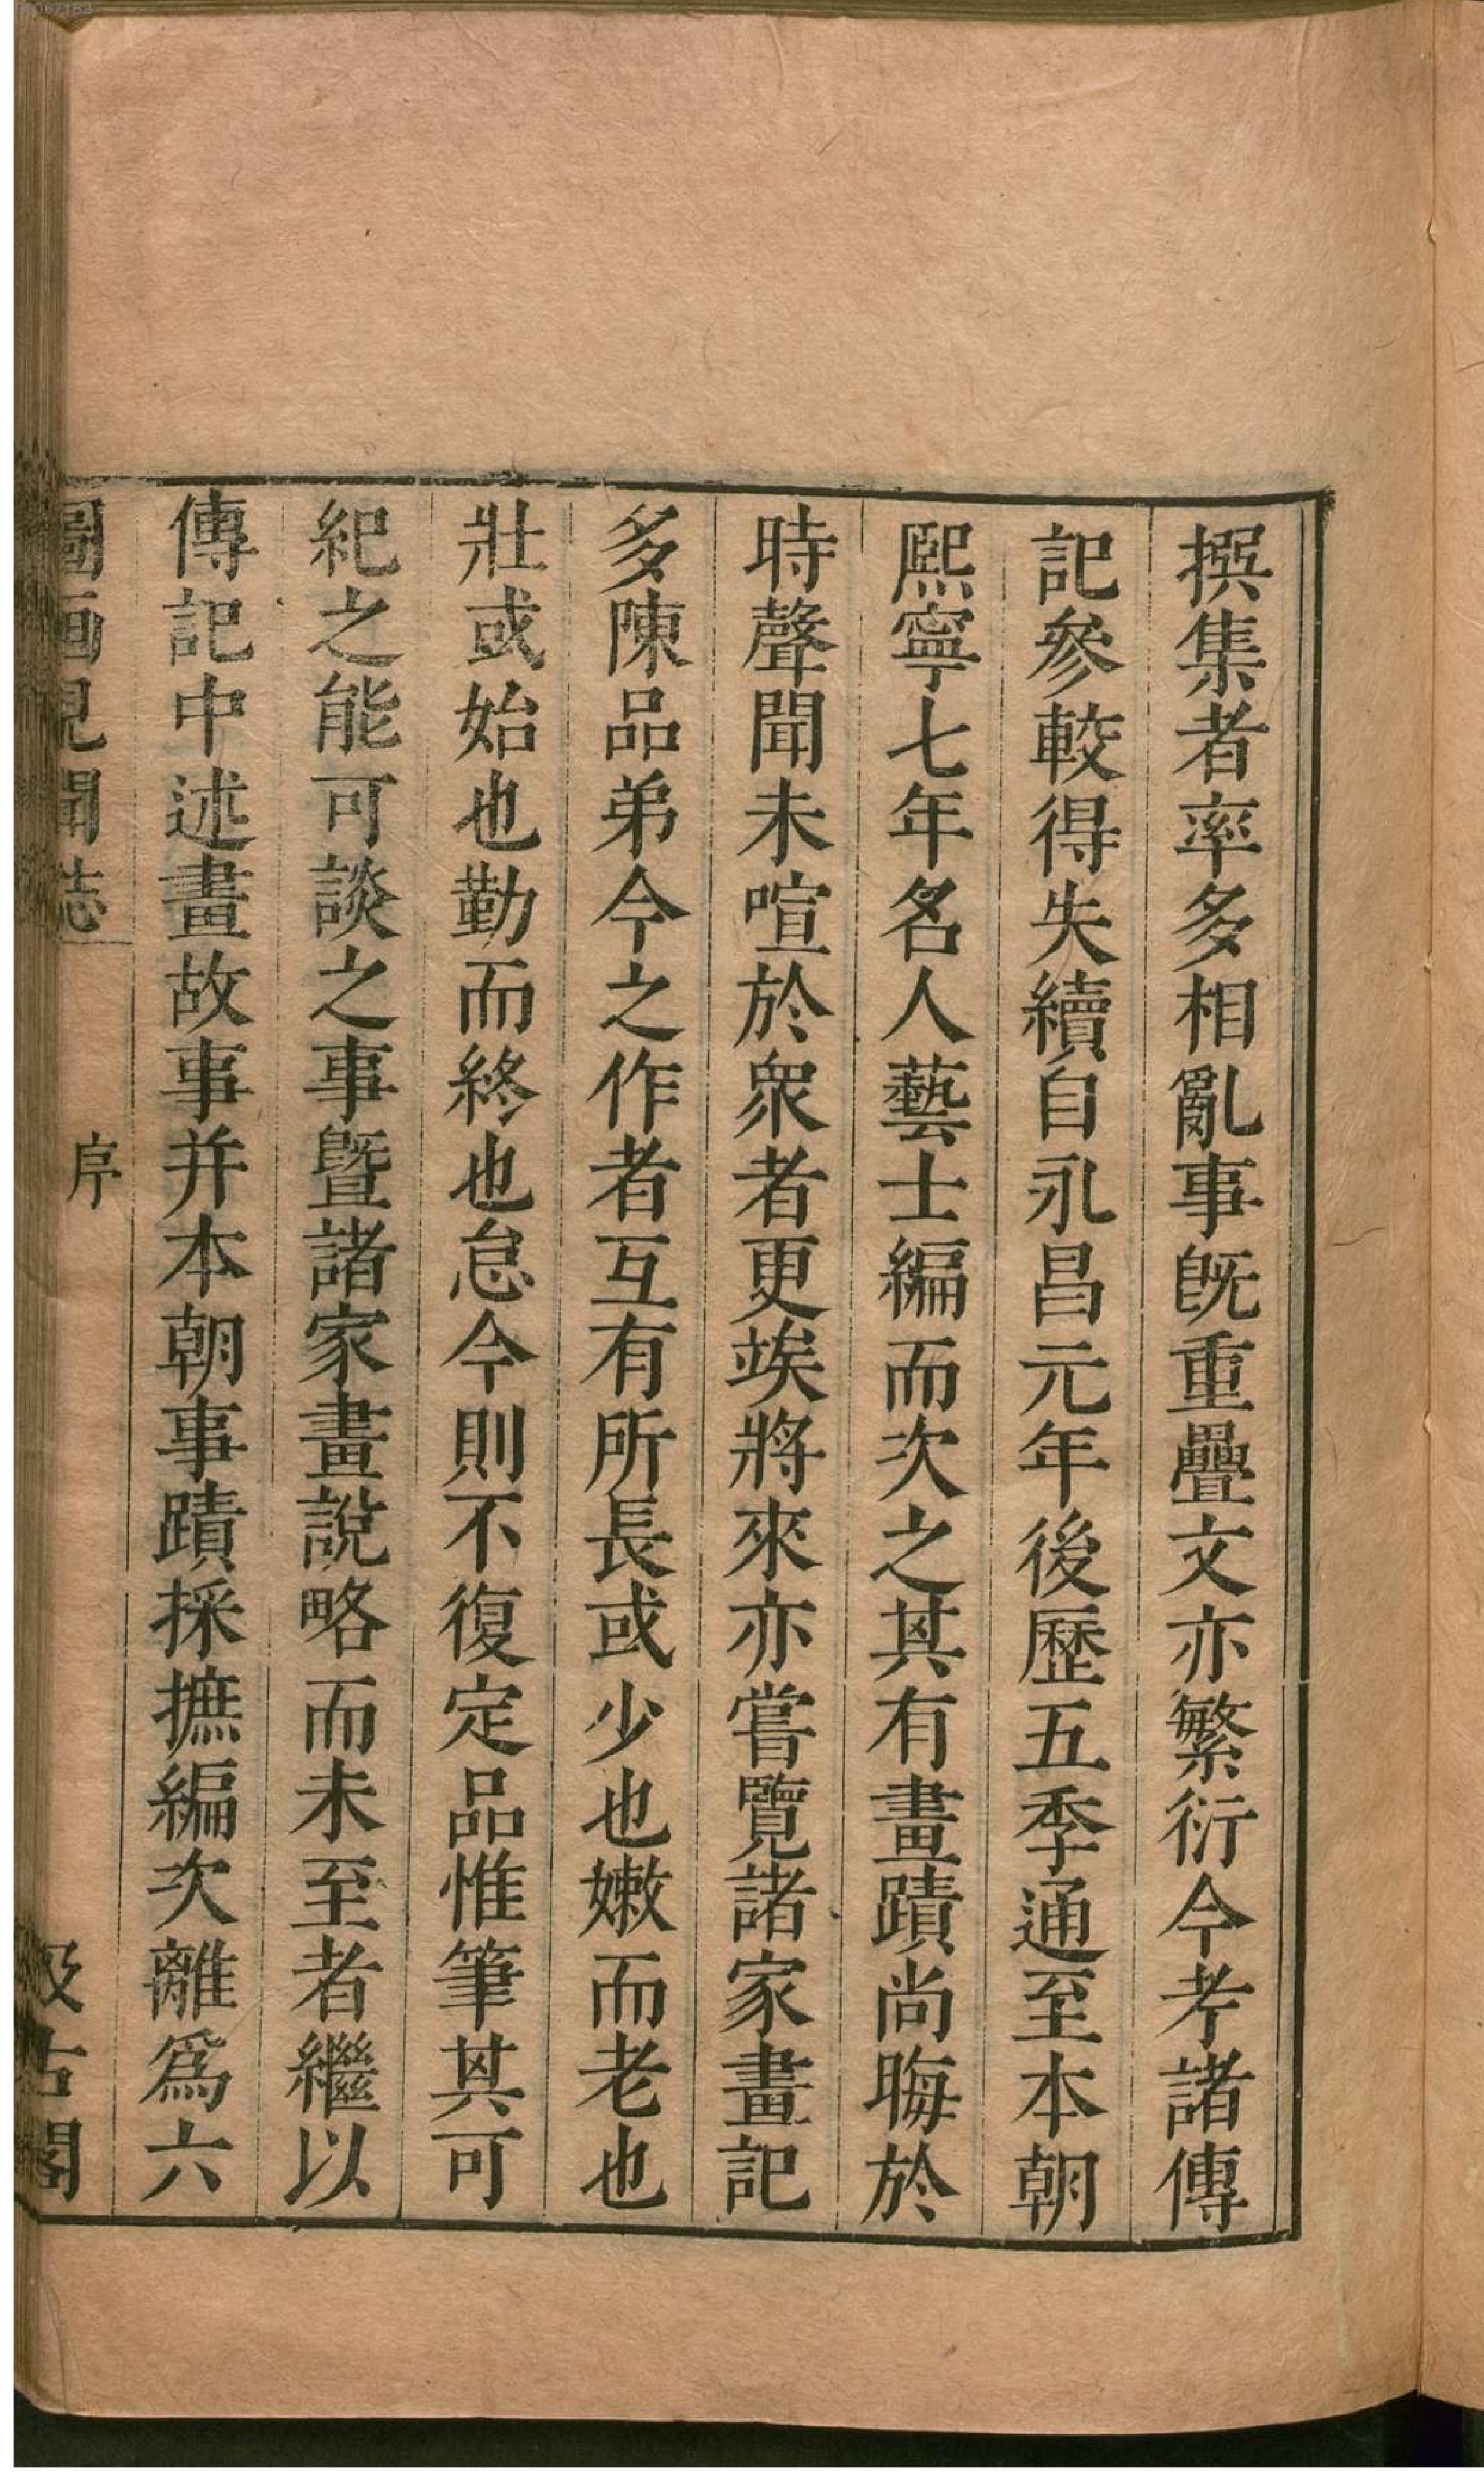 撰集者率多相亂事既重疊文亦繁衍今考諸傳
記參較得失續自永昌元年後歷五季通至本朝
熙寧七年名人藝士編而次之其有畫蹟尚晦於
時聲聞未喧於衆者更竢將來亦嘗覽諸家畫記
多陳品弟今之作者互有所長或少也嫩而老也
壯或始也勤而終也怠今則不復定品惟筆其可
紀之能可談之事暨諸家畫說略而未至者繼以
傳記中述畫故事并本朝事蹟採摭編次離爲六
圖画見聞誌 序 汲古閣